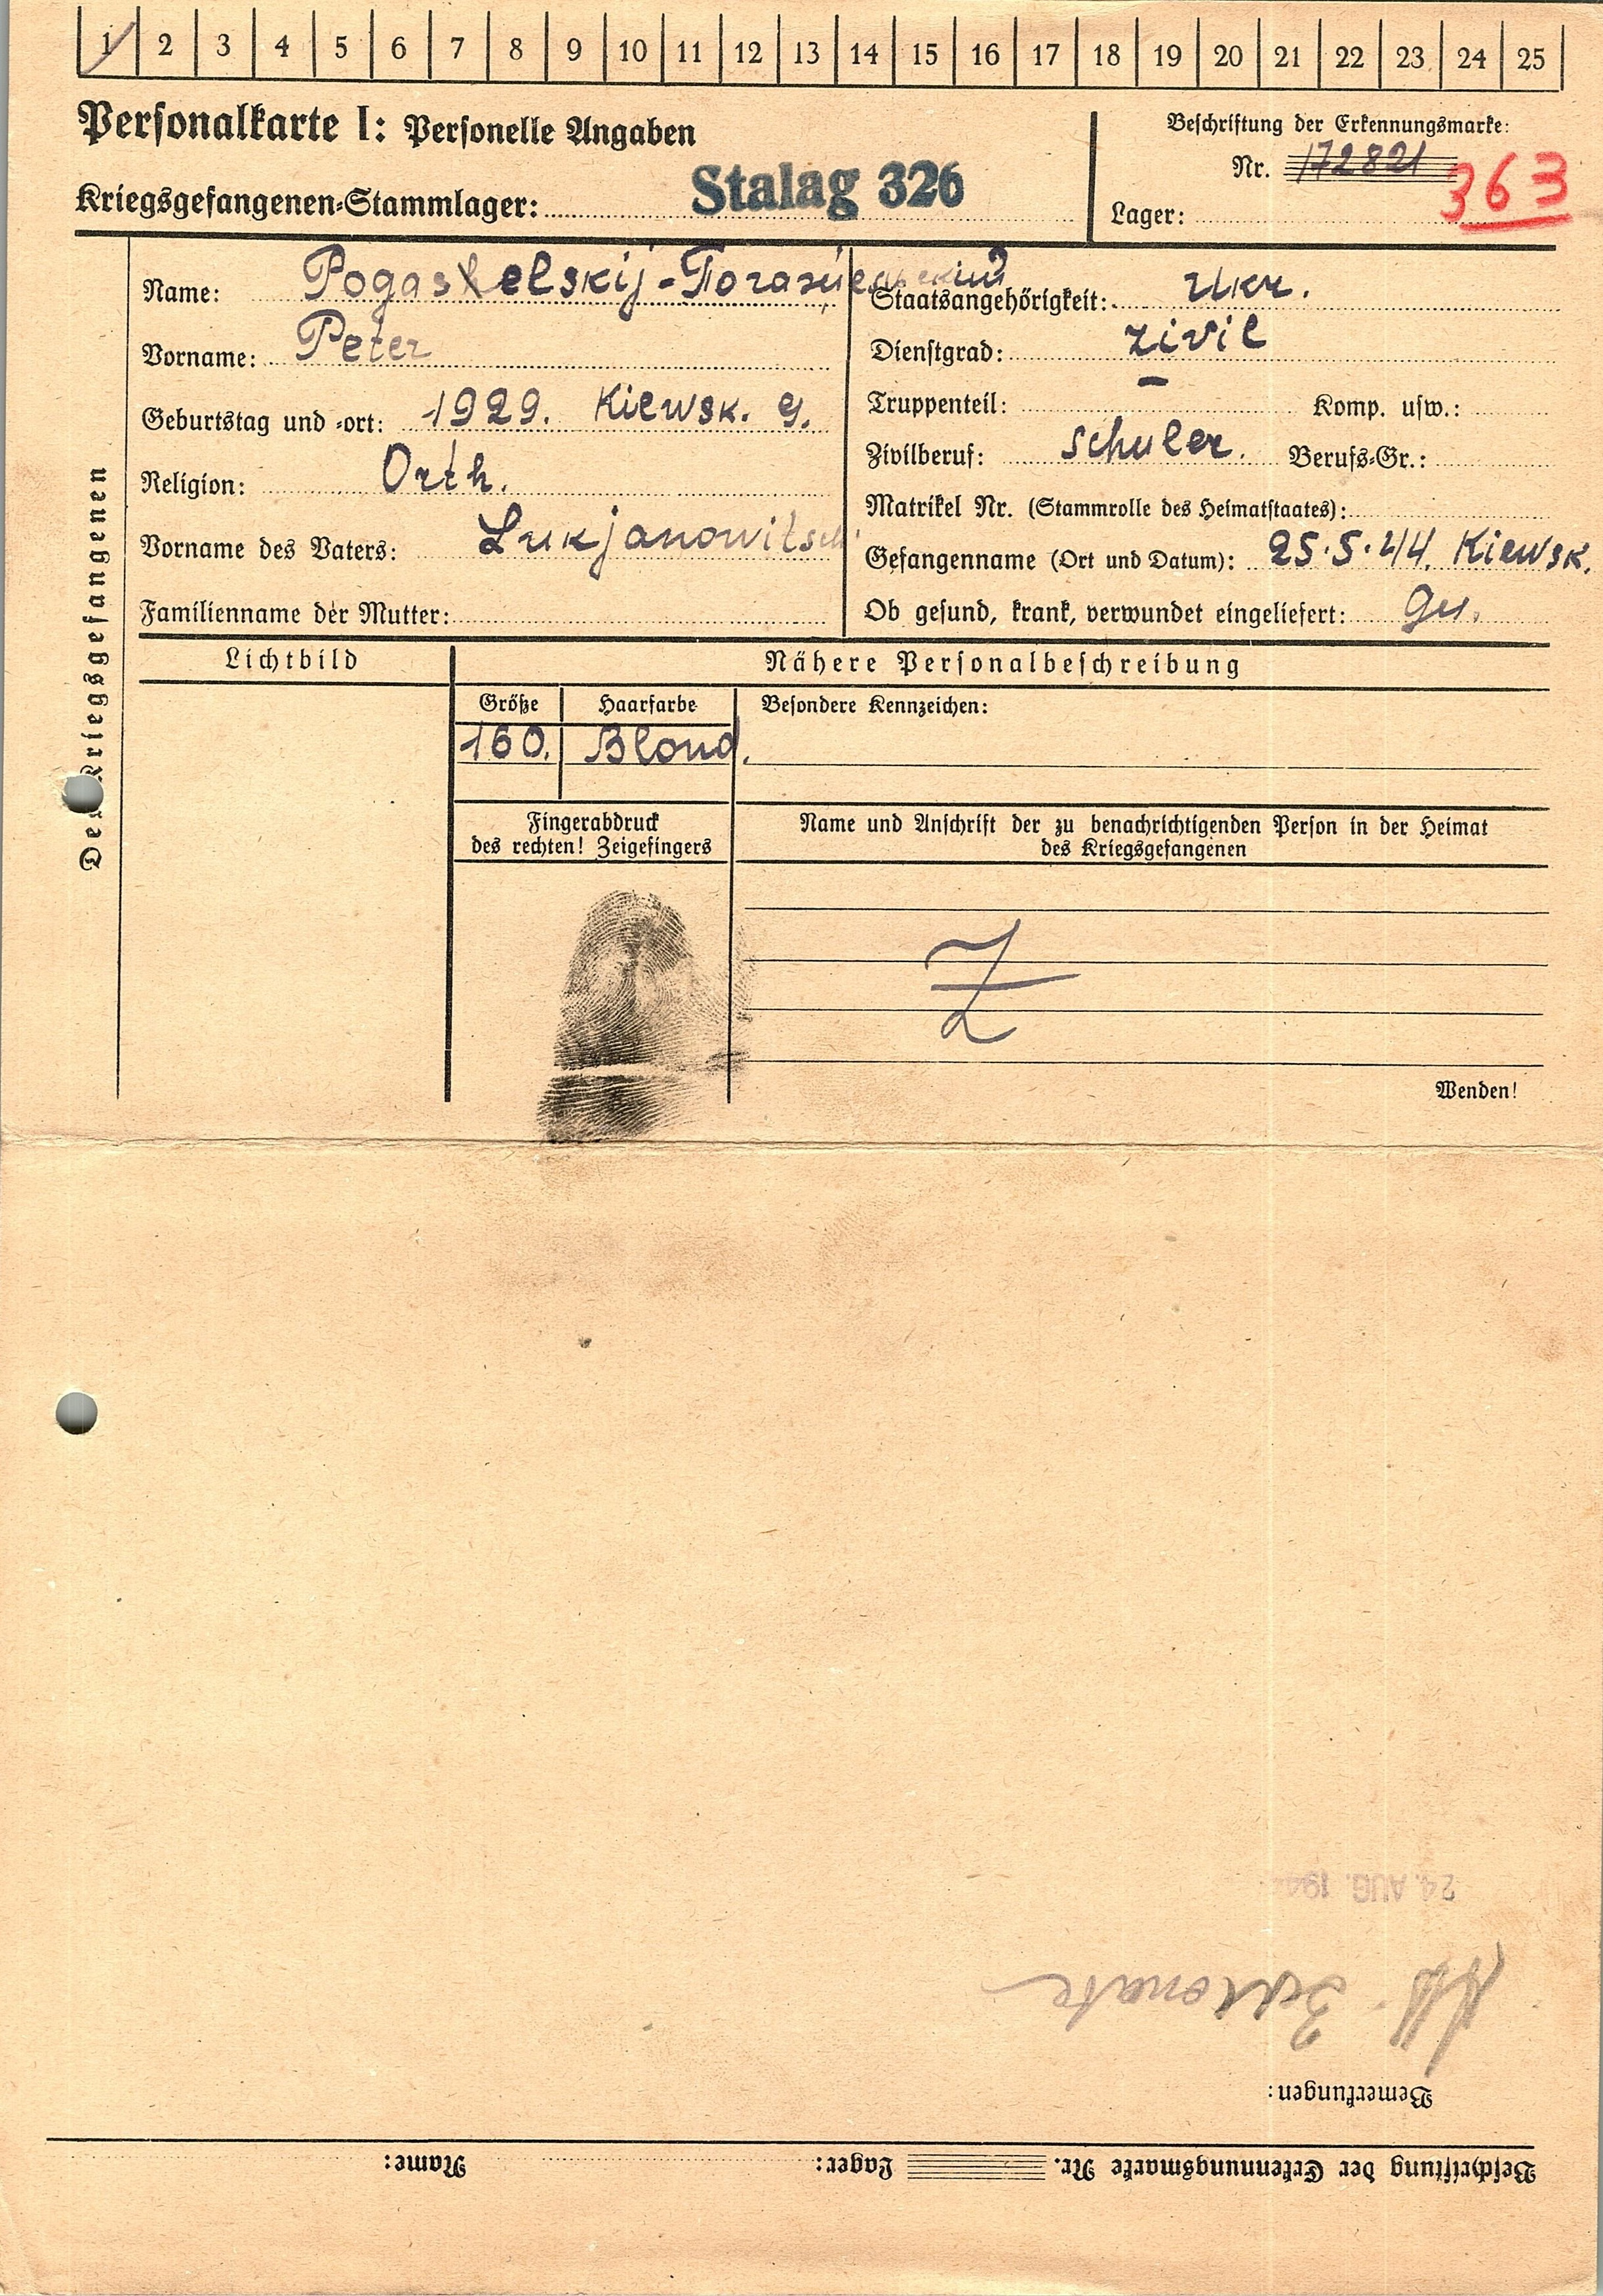 1 2 3 4 5 6 7 8 9 10 11 12 13 14 15 16 17 18 19 20 21 22 23 24 25
Personalkarte I: Personelle Angaben
Beschriftung der Erkennungsmarke:
Nr. 172821
363
Kriegsgefangenen-Stammlager: Stalag 326
Lager:
Des Kriegsgefangenen
Name: Pogaselskij -
Vorname: Peter
Geburtstag und -ort: 1929. Kiewsk. g.
Religion: Orth.
Vorname des Vaters: Lukjanowitsch
Familienname der Mutter:
Staatsangehörigkeit: Ukr.
Dienstgrad: Zivil
Truppenteil: — Komp. usw.:
Zivilberuf: Schuler. Berufs-Gr.:
Matrikel Nr. (Stammrolle des Heimatstaates):
Gefangenname (Ort und Datum): 25.5.44. Kiewsk.
Ob gesund, krank, verwundet eingeliefert: Ges.
Lichtbild
Nähere Personalbeschreibung
Größe
Haarfarbe
Besondere Kennzeichen:
160. Blond.
Fingerabdruck
des rechten! Zeigefingers
Name und Anschrift der zu benachrichtigenden Person in der Heimat
des Kriegsgefangenen
Z
Wenden!
24. AUG. 194
Bemerkungen:
Beschriftung der Erkennungsmarke Nr. Lager: Name: